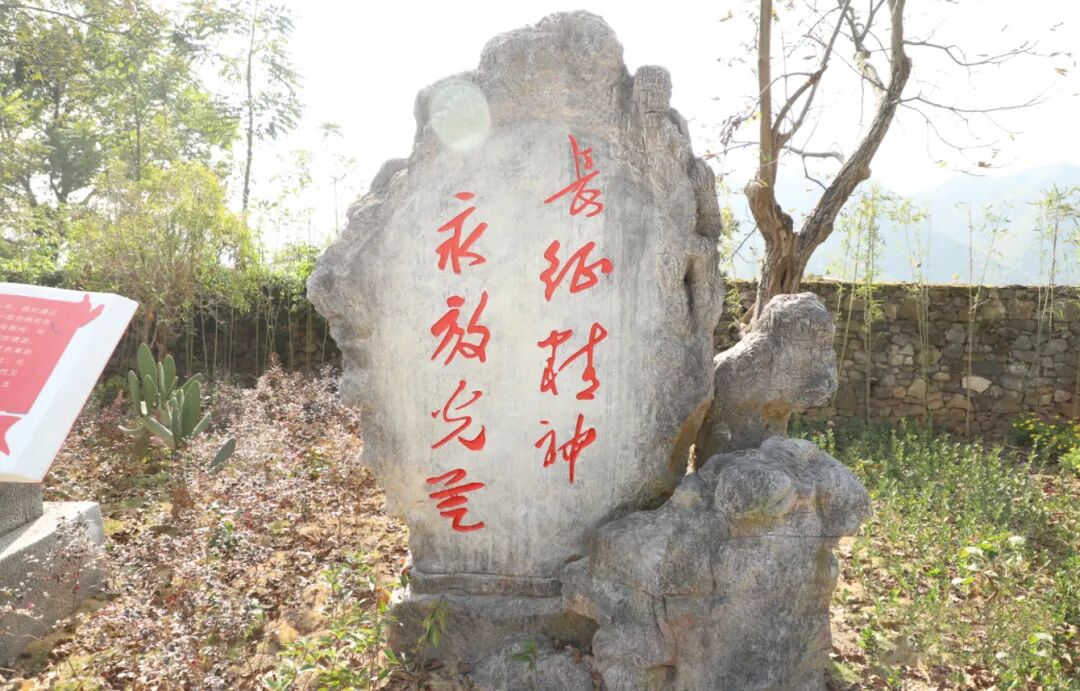 长征精神
永放光芒